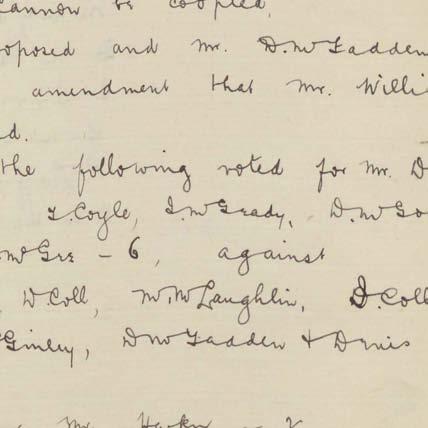 cannow be coopted,
oposed and Mr. D. McFadden
amendment that Mr. Willi
d.
the following voted for Mr. D
Coyle, J McGrady, D. McGo
McGee - 6, against
D Coll, M. McLaughlin, D. Coll
Ginley, D McFadden + Denis
Mr.